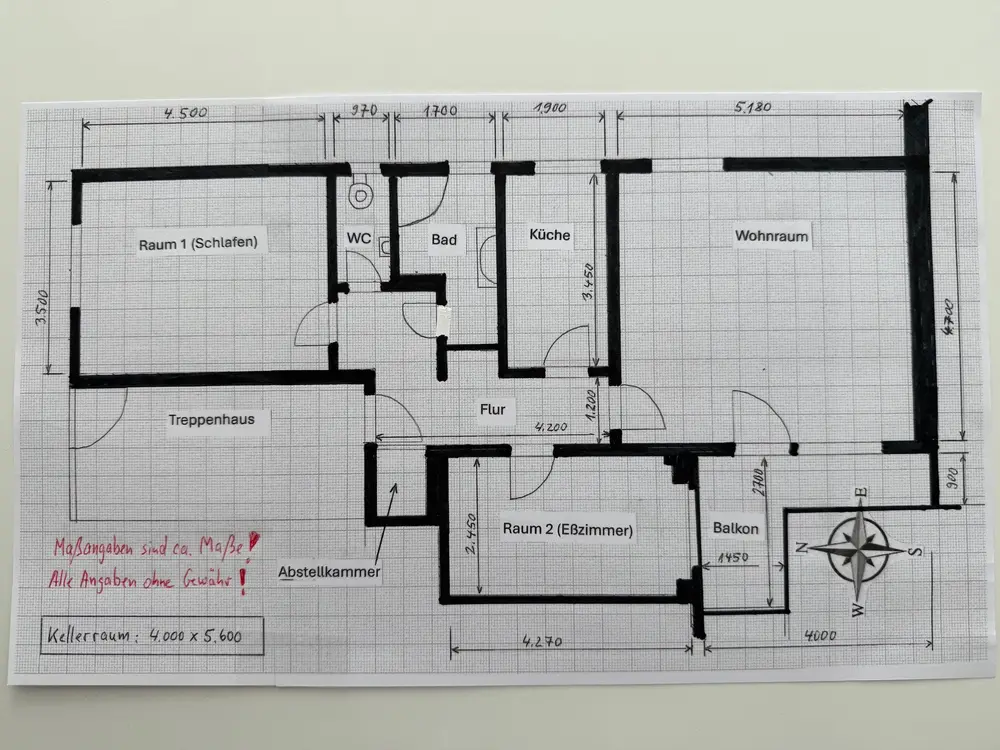 4.500
970
1.700
1.900
5.180
Raum 1 (Schlafen)
WC
Bad
Küche
Wohnraum
3.500
3.450
4.700
Treppenhaus
Flur
1.200
4.200
2.450
Raum 2 (Eßzimmer)
2700
Balkon
1450
900
E
N
S
W
Maßangaben sind ca. Maße!
Alle Angaben ohne Gewähr!
Abstellkammer
Kellerraum: 4.000 x 5.600
4.270
4000